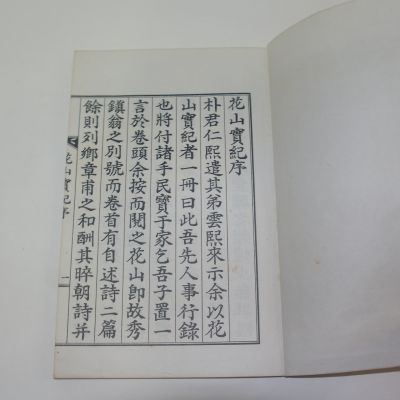 花山寶紀序
朴君仁熙遣其弟雲熙來示余以花
山寶紀者一冊曰此吾先人事行錄
也將付諸手民寶于家乞吾子置一
言於卷頭余按而閱之花山即故秀
鎭翁之別號而卷首有自述詩二篇
餘則列鄕章甫之和酬其晬朝詩并
花山寶紀序
一